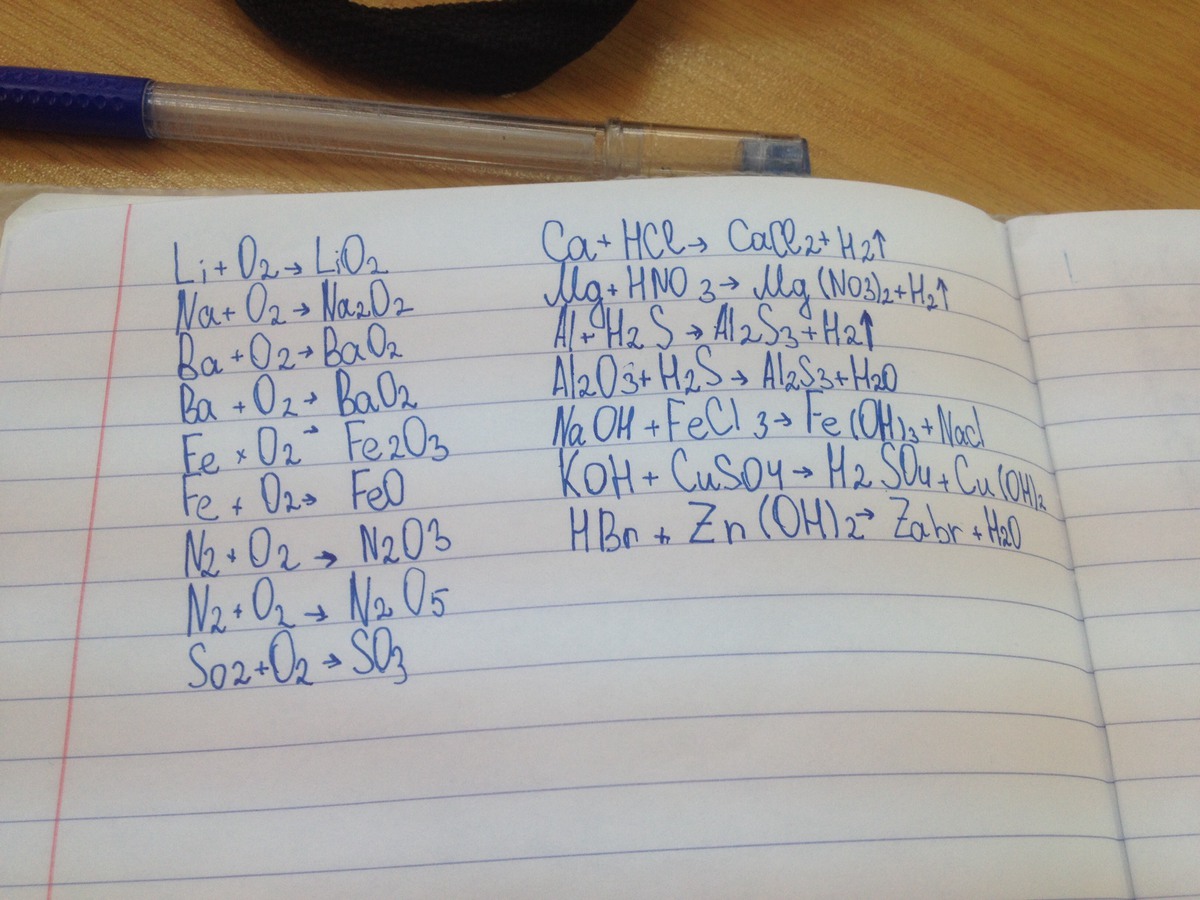 Li + O2 → LiO2
Na + O2 → Na2O2
Ba + O2 → BaO2
Ba + O2 → BaO2
Fe × O2 → Fe2O3
Fe + O2 → FeO
N2 + O2 → N2O3
N2 + O2 → N2O5
SO2 + O2 → SO3
Ca + HCl → CaCl2 + H2↑
Mg + HNO3 → Mg(NO3)2 + H2↑
Al + H2S → Al2S3 + H2↑
Al2O3 + H2S → Al2S3 + H2O
NaOH + FeCl3 → Fe(OH)3 + Nacl
KOH + CuSO4 → H2SO4 + Cu(OH)2
HBr + Zn(OH)2 → Zabr + H2O